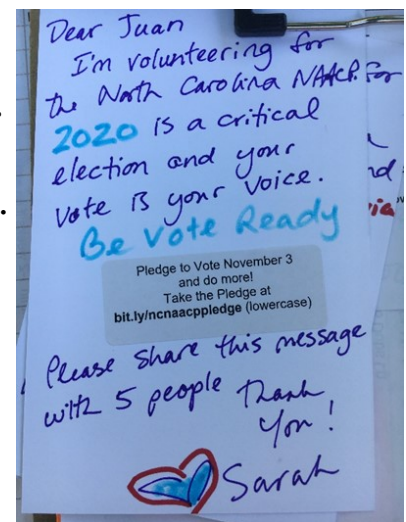 Dear Juan
I'm volunteering for
the North Carolina NAACP. For
2020 is a critical
election and your
vote is your voice.
Be Vote Ready
Pledge to Vote November 3
and do more!
Take the Pledge at
bit.ly/ncnaacppledge (lowercase)
Please share this message
with 5 people Thank
You!
Sarah